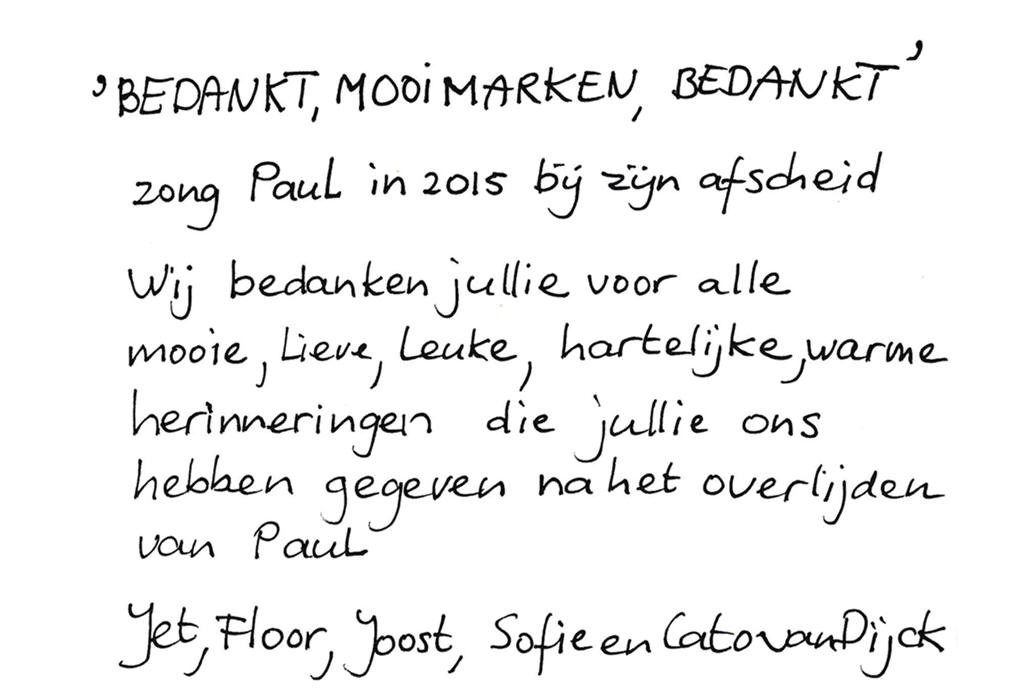 'BEDANKT, MOOI MARKEN, BEDANKT'
zong Paul in 2015 bij zijn afscheid
Wij bedanken jullie voor alle
mooie, lieve, leuke, hartelijke, warme
herinneringen die jullie ons
hebben gegeven na het overlijden
van Paul
Jet, Floor, Joost, Sofie en Cato van Dijck